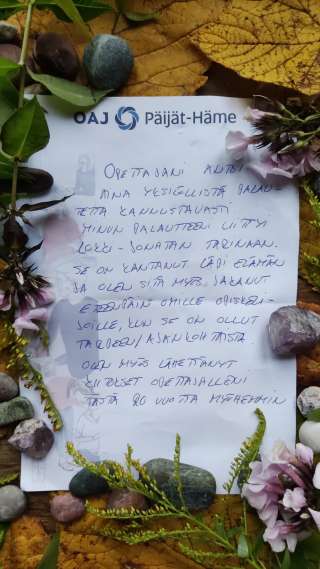 OAJ Päijät-Häme
OPETTAJANI ANTOI
AINA YKSILÖLLISTÄ PALAU-
TETTA KANNUSTAVASTI
MINUN PALAUTTEENI LIITTYI
LOKKI-JONATAN TARINAAN.
SE ON KANTANUT LÄPI ELÄMÄN
JA OLEN SITÄ MYÖS JAKANUT
ETEENPÄIN OMILLE OPISKELI-
JOILLE, KUN SE ON OLLUT
TARPEEN/AJANKOHTAISTA.
OLEN MYÖS LÄHETTÄNYT
KIITOKSET OPETTAJALLENI
TÄSTÄ 20 VUOTTA MYÖHEMMIN